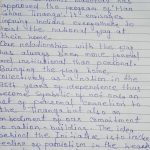 approved the program of Har
Ghar Tiranga". It envisages
inspiring Indians everywhere to
hoist the national flag at
their home.
Our relationship with the flag
has always been more formal
and institutional than personal.
Bringing the flag home
collectively as a nation in the
75th years of independence thus
becomes symbolic of not only an
act of personal connection to
the Tiranga but also an
embodiment of our commitment
to nation-building. The idea
behind the initiative is to invoke
feeling of patriotism in the hearts